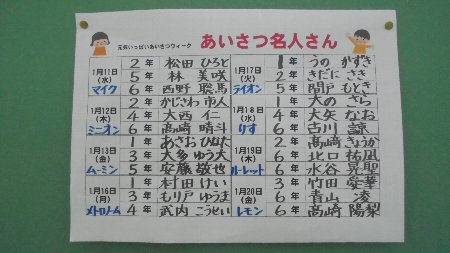 元気いっぱいあいさつウィーク
あいさつ名人さん
1月11日(水) マイク
2年 松田 ひろと
5年 林 美咲
6年 西野 聡馬
1月12日(木) ミニオン
2年 かじさわ 市人
4年 大西 仁
6年 高崎 晴斗
1月13日(金) ムーミン
1年 あさお ひなた
3年 大多 ゆう大
5年 安藤 敬也
1月16日(月) メトロノーム
1年 村田 けい
3年 もり戸 ゆうま
4年 武内 こうせい
1月17日(火) ライオン
1年 うの かずき
2年 きだに さき
5年 間戸 もとき
1月18日(水) りす
1年 大の さら
4年 大矢 なお
6年 古川 諒
1月19日(木) ルーレット
2年 高崎 きょうか
6年 北口 祐凪
6年 水谷 晃聖
1月20日(金) レモン
3年 竹田 葵華
6年 青山 凌
6年 高崎 陽梨